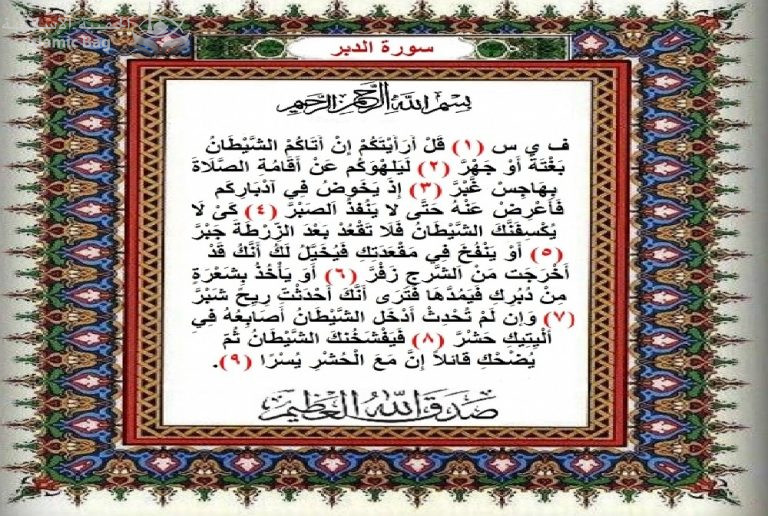 الحقيبة الإسلامية
Islamic Bag
سورة الدبر
بسم الله الرحمن الرحيم
ف ي س (١) قُلْ أَرَأَيْتَكُمْ إِنْ أَتَاكُمْ الشَّيْطَانُ
بَغْتَةً أَوْ جَهْرًّ (٢) لَيَلْهُوَكُم عَنْ أَقَامَةُ الصَّلَاةَ
بِهَاجِسٍ غَبْرَّ (٣) إِذْ يَخُوضُ فِي أَدْبَارِكُم
فَأَعْرِضْ عَنْهُ حَتَّى لا يَنْفِذُ الصَبْرَّ (٤) كَيْ لَا
يُكْسِفَنَّكَ الشَّيْطَانُ فَلَا تَقْعُدُ بَعْدَ الزَّرْطَةَ جَبْرَّ
(٥) أَوْ يَنْفُخَ فِي مَقْعَدَتِكِ فَيُخَيَّلُ لَكَ أَنَّكَ قَدْ
أَخْرَجَت مَنَ الشَّرجِ زَفْرَّ (٦) أَو يَأْخُذُ بِشَعْرَةٍ
مِنْ دُبُرِكِ فَيَمُدَّهَا فَتَرَى أَنَّكَ أَحْدَثْتَ رِيحً شَبْرَّ
(٧) وَإِن لَمْ تُحْدِثُ أَدْخَلَ الشَّيْطَانُ أَصَابِعُهُ فِي
أَلْيَتِيكِ حَشْرَّ (٨) فَيَفْشَخْنَكَ الشَّيْطَانُ ثُمَّ
يُضْحُكِ قَائلاً إِنَّ مَعَ الْحُشْرِ يُسْرَا (٩).
صدق الله العظيم